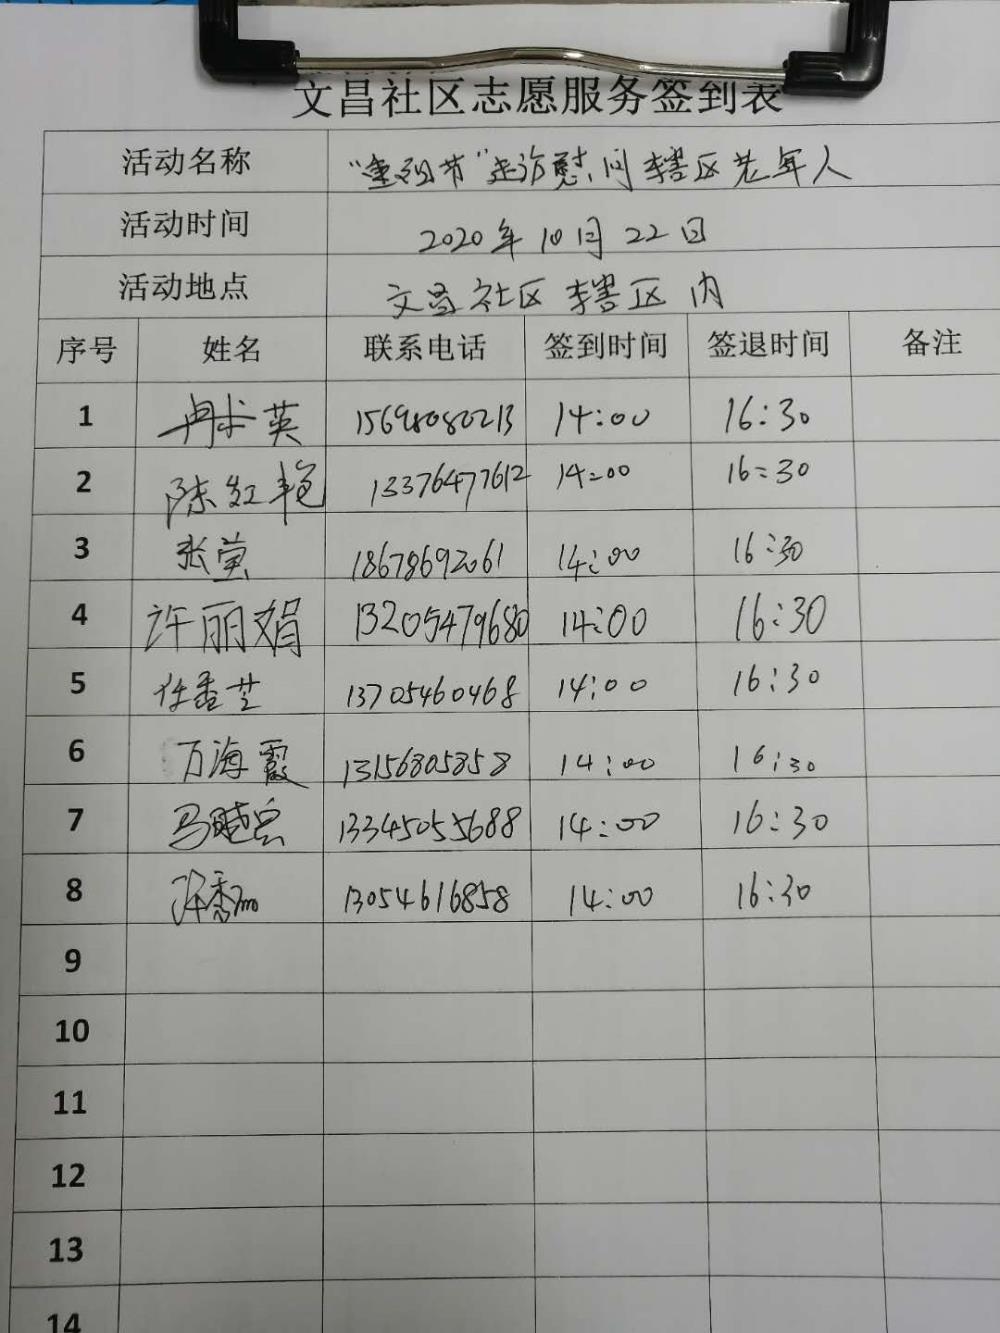 文昌社区志愿服务签到表
活动名称 “重阳节”走访慰问辖区老年人
活动时间 2020年10月22日
活动地点 文昌社区辖区内
序号 姓名 联系电话 签到时间 签退时间 备注
1 冉求英 15698080213 14:00 16:30
2 陈红艳 13376477612 14:00 16:30
3 张莹 18678692061 14:00 16:30
4 许丽娟 13205479680 14:00 16:30
5 任香芝 13705460468 14:00 16:30
6 万海霞 13156805858 14:00 16:30
7 马 13345055688 14:00 16:30
8 许秀 13054616858 14:00 16:30
9
10
11
12
13
14